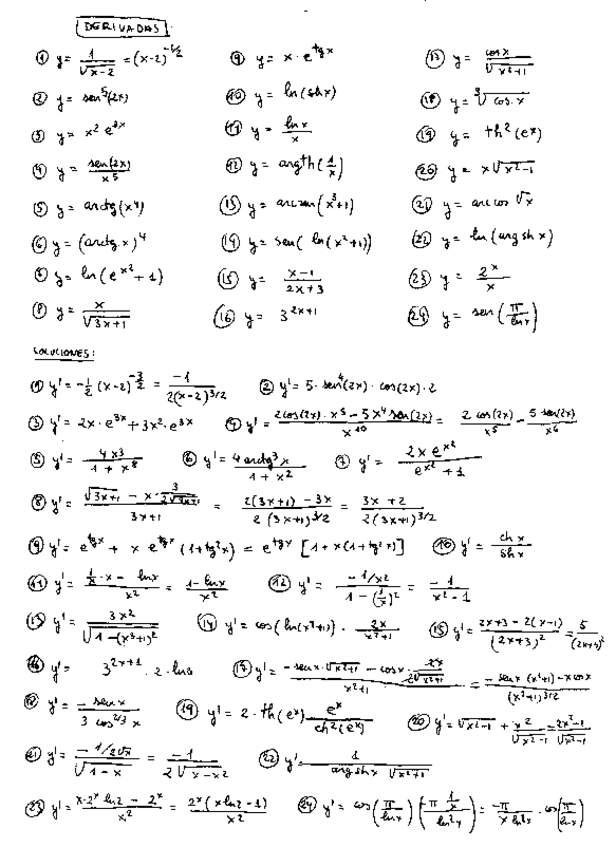 DERIVADAS
① y = 1/√(x-2) = (x-2)^(-1/2)
② y = sen⁵(2x)
③ y = x² e^(3x)
④ y = sen(2x)/x⁵
⑤ y = arctg(x⁴)
⑥ y = (arctg x)⁴
⑦ y = ln(e^(x²) + 1)
⑧ y = x/√(3x+1)
⑨ y = x · e^(tg x)
⑩ y = ln(sh x)
⑪ y = ln x/x
⑫ y = argth(1/x)
⑬ y = arcsen(x³+1)
⑭ y = sen(ln(x²+1))
⑮ y = (x-1)/(2x+3)
⑯ y = 3^(2x+1)
⑰ y = cos x/√(x²+1)
⑱ y = ∛(cos x)
⑲ y = th²(e^x)
⑳ y = x√(x²-1)
㉑ y = arc cos √x
㉒ y = ln(argsh x)
㉓ y = 2^x/x
㉔ y = sen(π/ln x)
SOLUCIONES:
① y' = -1/2 (x-2)^(-3/2) = -1/(2(x-2)^(3/2)) ② y' = 5 · sen⁴(2x) · cos(2x) · 2
③ y' = 2x · e^(3x) + 3x² · e^(3x) ④ y' = (2cos(2x) · x⁵ - 5x⁴ sen(2x))/x^10 = 2 cos(2x)/x⁵ - 5 sen(2x)/x⁶
⑤ y' = 4x³/(1 + x⁸) ⑥ y' = 4 arctg³x/(1 + x²) ⑦ y' = 2x e^(x²)/(e^(x²) + 1)
⑧ y' = (√(3x+1) - x · 3/(2√(3x+1)))/(3x+1) = (2(3x+1) - 3x)/(2(3x+1)^(3/2)) = (3x+2)/(2(3x+1)^(3/2))
⑨ y' = e^(tg x) + x e^(tg x) (1+tg²x) = e^(tg x) [1 + x(1+tg²x)] ⑩ y' = ch x/sh x
⑪ y' = (1/x · x - ln x)/x² = (1-ln x)/x² ⑫ y' = (-1/x²)/(1-(1/x)²) = -1/(x²-1)
⑬ y' = 3x²/√(1-(x³+1)²) ⑭ y' = cos(ln(x²+1)) · 2x/(x²+1) ⑮ y' = (2x+3 - 2(x-1))/(2x+3)² = 5/(2x+3)²
⑯ y' = 3^(2x+1) · 2 · ln3 ⑰ y' = (-sen x · √(x²+1) - cos x · 2x/(2√(x²+1)))/(x²+1) = (-sen x (x²+1) - x cos x)/(x²+1)^(3/2)
⑱ y' = -sen x/(3 cos^(2/3) x) ⑲ y' = 2 · th(e^x) e^x/ch²(e^x) ⑳ y' = √(x²-1) + x²/√(x²-1) = (2x²-1)/√(x²-1)
㉑ y' = (-1/2√x)/√(1-x) = -1/(2√(x-x²)) ㉒ y' = 1/(argsh x √(x²+1))
㉓ y' = (x·2^x ln2 - 2^x)/x² = 2^x(x ln2 - 1)/x² ㉔ y' = cos(π/ln x) (-π (1/x)/ln²x) = -π/(x ln²x) · cos(π/ln x)